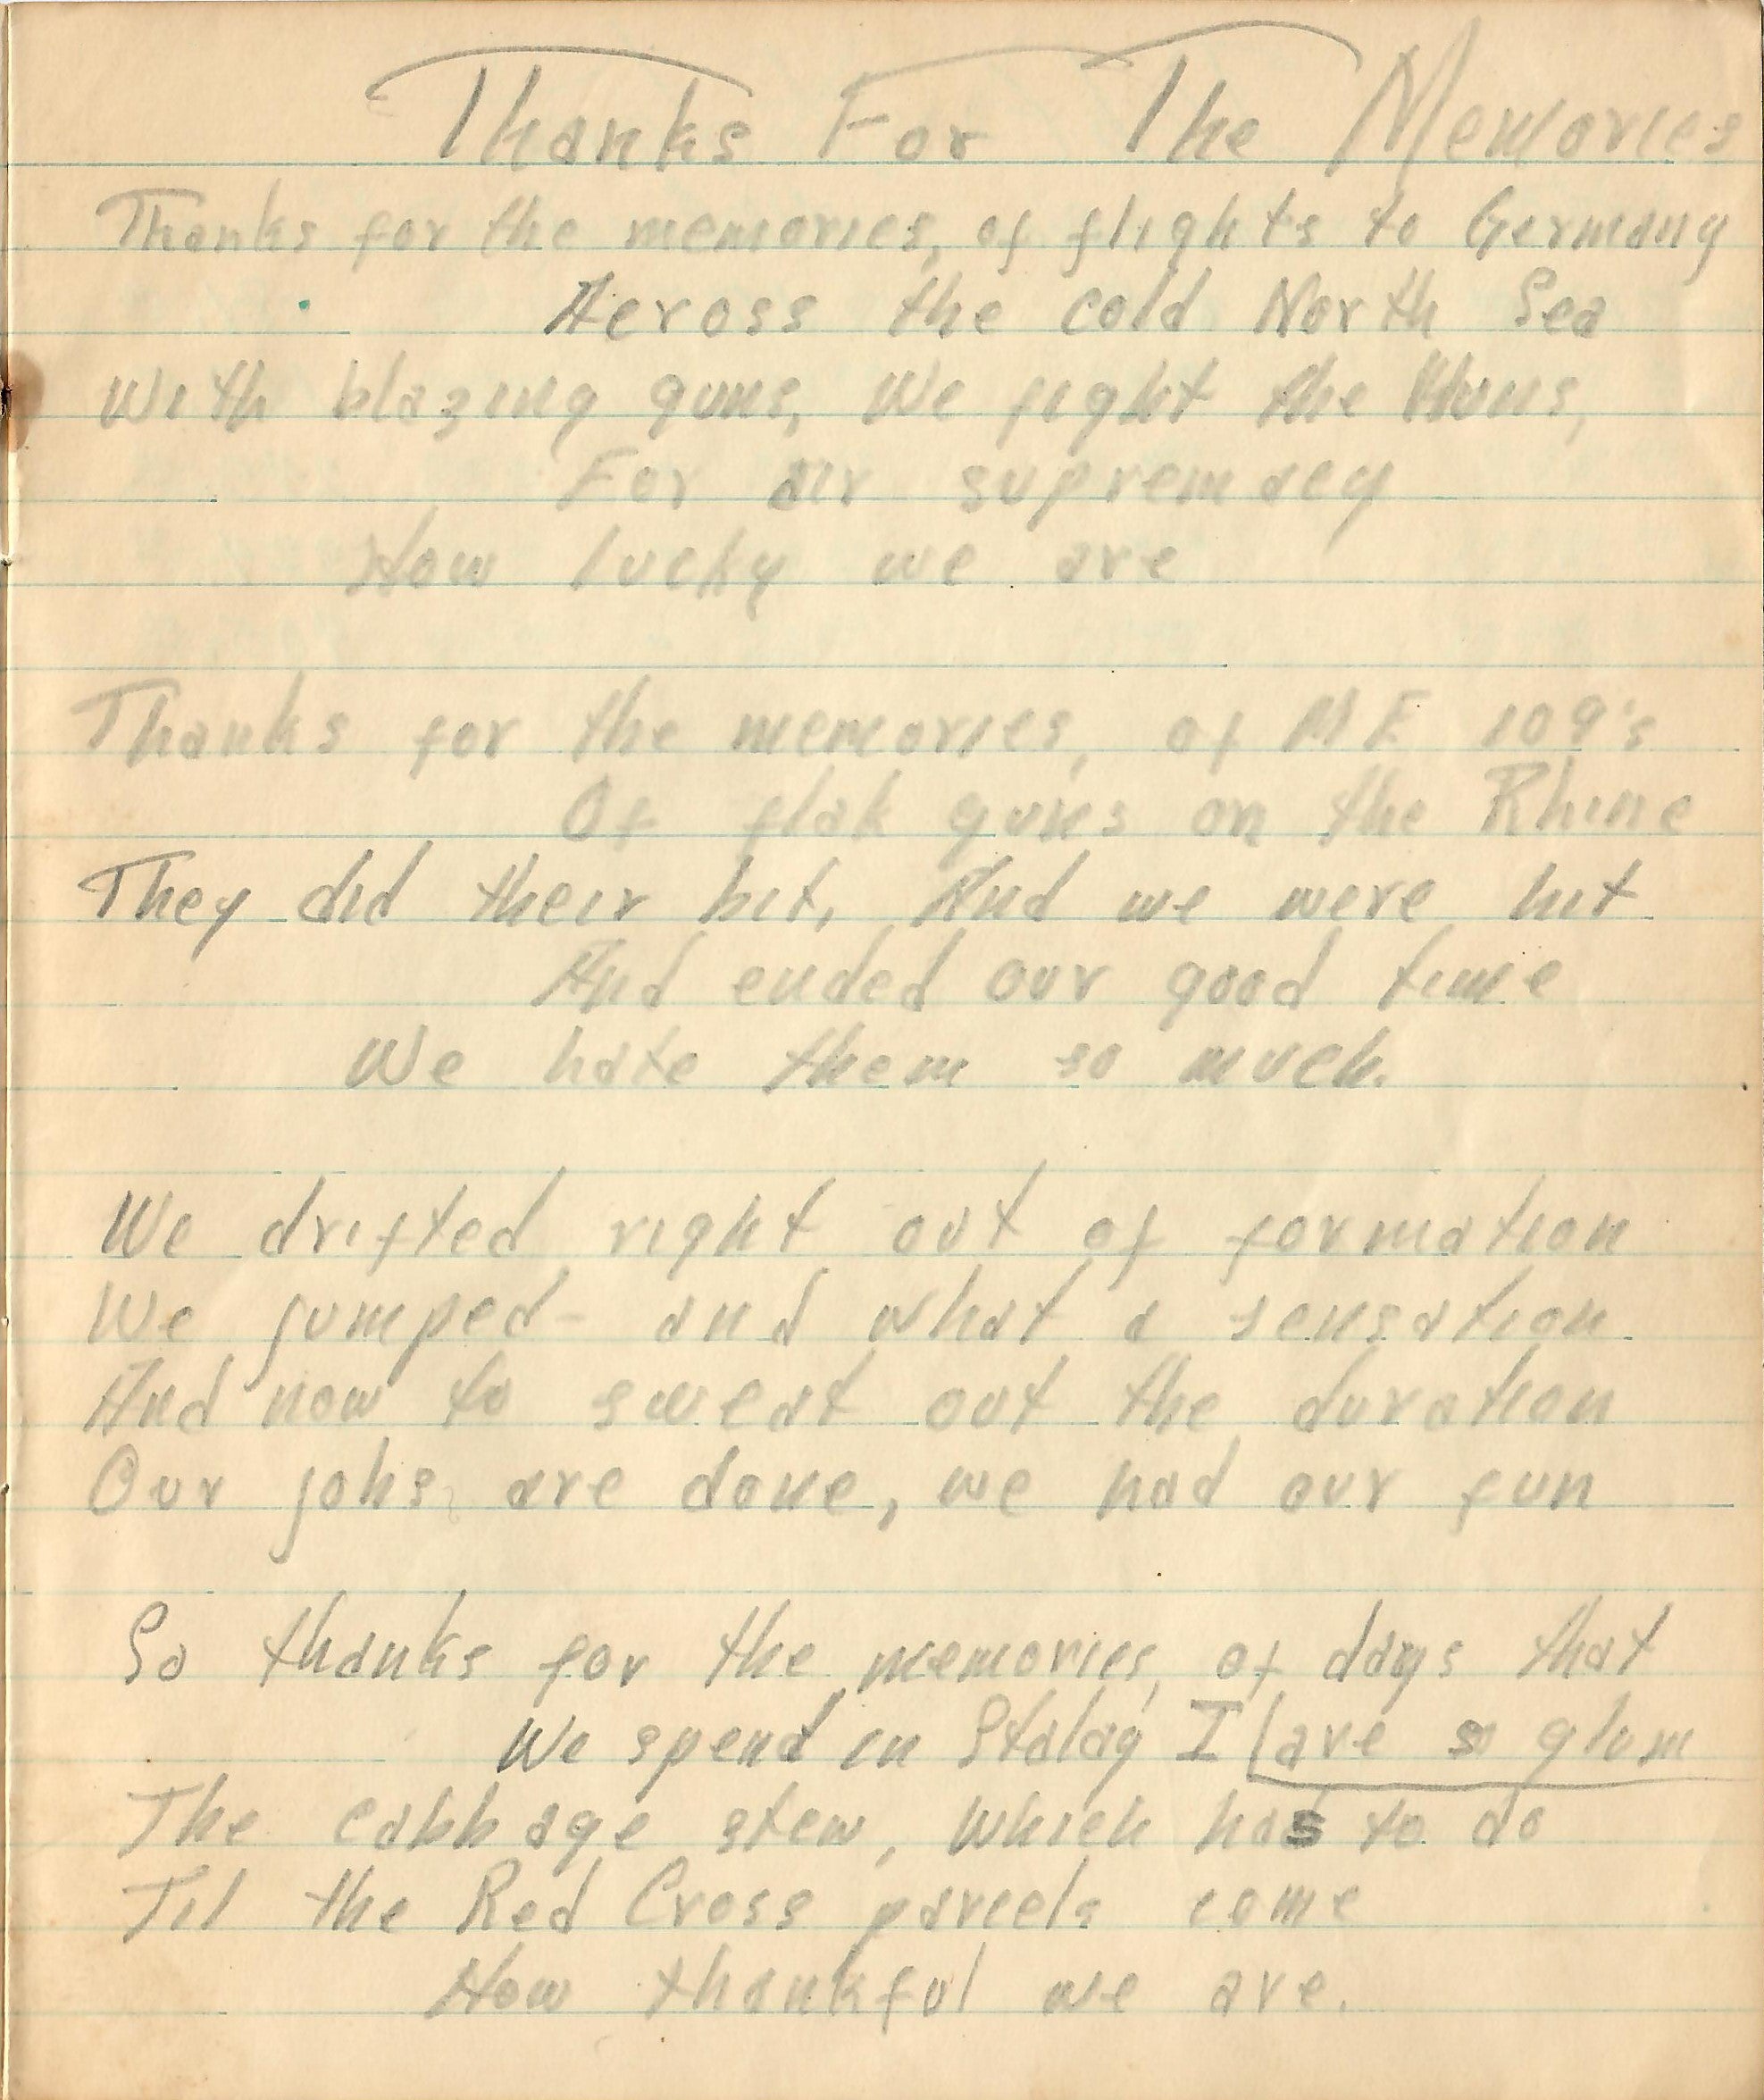 Thanks For The Memories
Thanks for the memories, of flights to Germany
Across the cold North Sea
With blazing guns, We fight the Huns,
For air supremacy
How lucky we are
Thanks for the memories, of ME 109's
Of flak guns on the Rhine
They did their bit, And we were hit
And ended our good time
We hate them so much.
We drifted right out of formation
We jumped - and what a sensation
And now to sweat out the duration
Our jobs are done, we had our fun
So thanks for the memories, of days that
We spend in Stalag I (are so glum
The cabbage stew, which has to do
Til the Red Cross parcels come
How thankful we are.